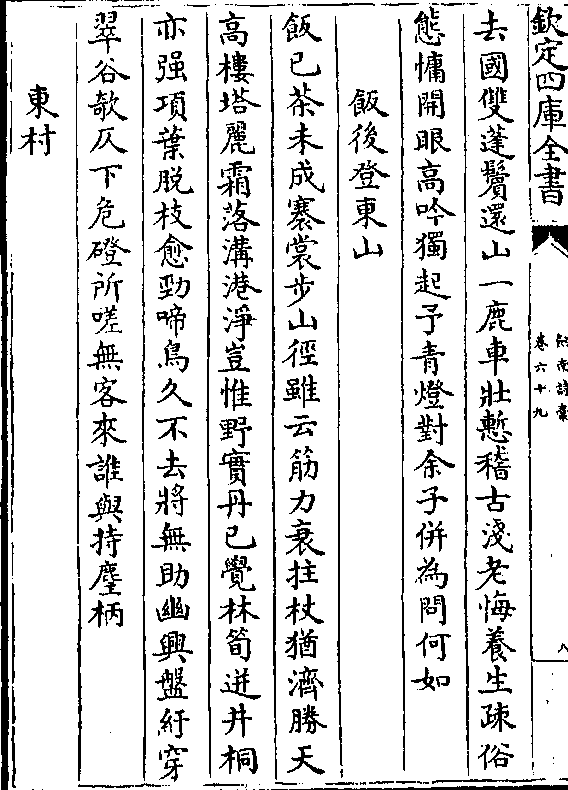 欽定四庫全書
劍南詩藁
卷六十九
八
去國雙蓬鬢還山一鹿車壯慙稽古淺老悔養生疎俗
態慵開眼高吟獨起予青燈對余子併為問何如
飯後登東山
飯已茶未成褰裳步山徑雖云筋力衰拄杖猶濟勝天
高樓塔麗霜落溝港淨豈惟野實丹已覺林筍迸井桐
亦强項葉脱枝愈勁啼鳥久不去將無助幽興盤紆穿
翠谷欹仄下危磴所嗟無客來誰與持麈柄
東村